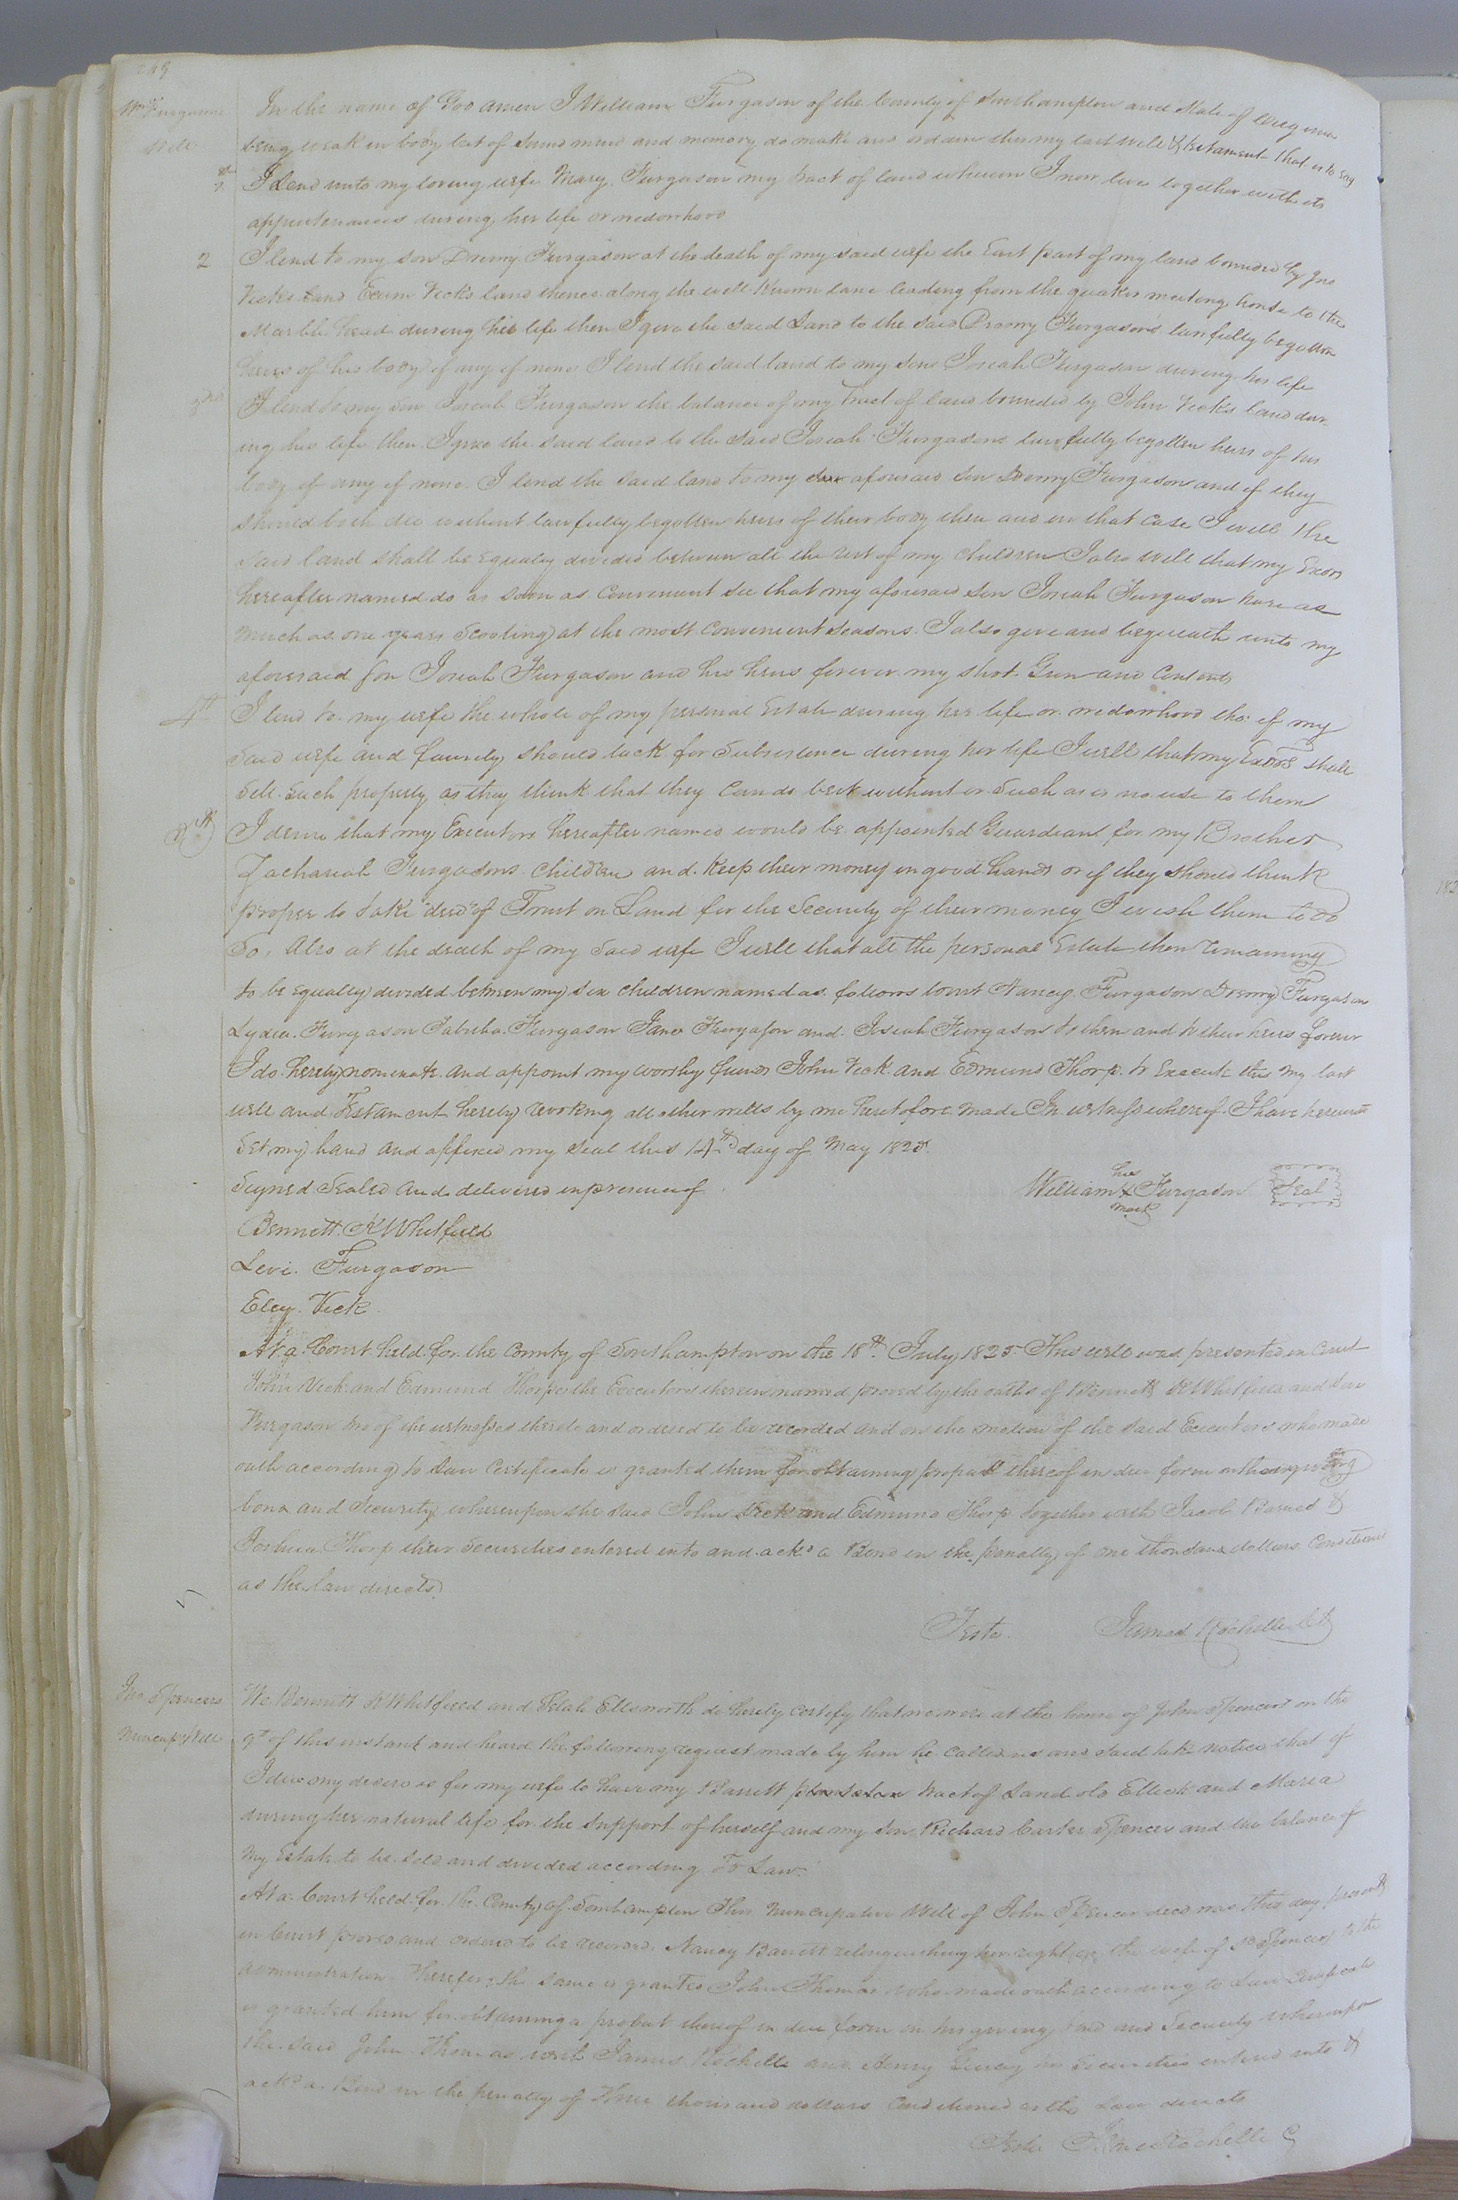 Wm Furgasons
Will
In the name of God amen I William Furgason of the County of Southampton and State of Virginia
being weak in body but of Sound mind and memory do make and ordain this my last will & testament that is to say
1st I Lend unto my loving wife Mary Furgason my tract of land whereon I now live together with its
appurtenances during her life or widowhood
2 I lend to my son Drewry Furgason at the death of my said wife the East part of my land bounded by Jno
Vicks land Exum Vicks land thence along the well known lane leading from the quaker meeting house to the
Marble head during his life then I give the said Land to the said Drewry Furgasons lawfully begotten
heirs of his body if any if none I lend the said land to my son Josiah Furgason during his life
3rd I lend to my son Josiah Furgason the balance of my tract of land bounded by John Vicks land dur
ing his life then I give the said land to the said Josiah Furgasons lawfully begotten heirs of his
body if any if none I lend the said land to my aforesaid son Drewry Furgason and if they
should both die without lawfully begotten heirs of their body then and in that case I will the
said land shall be Equally divided between all the rest of my children I also will that my Exors
hereafter named do as soon as convenient see that my aforesaid son Josiah Furgason have as
much as one years Scooling at the most convenient seasons. I also give and bequeath unto my
aforesaid son Josiah Furgason and his heirs forever my shot Gun and
4th I lend to my wife the whole of my personal Estate during her life or widowhood tho: if my
said wife and family should lack for Subsistence during her life I will that my Exors shall
Sell Such property as they think that they can do best without or Such as is no use to them
5th I desire that my Executors hereafter named would be appointed Guardians for my Brother
Zachariah Furgasons children and keep their money in good hands or if they should think
proper to take deed of Trust on Land for the Security of their money I wish them to do
So, Also at the death of my said wife I will that all the personal Estate then remaining
to be Equally divided between my six children named as follows towit Nancy Furgason Drewry Furgason
Lydia Furgason Tabitha Furgason Jane Furgason and Josiah Furgason to them and to their heirs forever
I do hereby nominate and appoint my worthy friends John Vick and Edmund Thorp to Execute this my last
will and Testament hereby revoking all other wills by me heretofore made In witness whereof I have hereunto
Set my hand and affixed my Seal this 14th day of May 1825
Signed Sealed and delivered in presence of
his
William X Furgason Seal
mark
Bennett K Whitfield
Levi Furgason
Eley Vick
At a Court held for the County of Southampton on the 18th July 1825 This will was presented in Court
John Vick and Edmund Thorp the Executors therein named proved by the oaths of Bennett K Whitfield and Levi
Furgason two of the witnesses thereto and ordered to be recorded and on the motion of the said Executors who made
oath according to Law Certificate is granted them for obtaining thereof in due form on their giving
bond and Security whereupon the said John Vick and Edmund Thorp together with Jacob Barnes &
Joshua Thorp their Securities entered into and ackd a Bond in the penalty of one thousand dollars Conditioned
as the law directs
Teste James Rochelle Clk
Jno Spencers
Nuncup: Will
We Bennett K Whitfield and Ellsworth do hereby certify that we were at the house of John Spencers on the
9th of this instant and heard the following request made by him he called us and said take notice that if
I die my desire is for my wife to have my Barrett plantation tract of Land old Ellick and Maria
during her natural life for the support of herself and my son Richard Carter Spencer and the balance of
my Estate to be sold and divided according To Law.
At a Court held for the County of Southampton This Nuncupative Will of John Spencer decd was this day presented
in Court proved and ordered to be recorded. Nancy Barrett relinquishing her right as the wife of sd Spencer to the
administration thereof the same is granted John Thomas who made oath according to Law Certificate
is granted him for obtaining a probat thereof in due form on his giving bond and Security whereupon
the said John Thomas with James Rochelle and Henry his Securities entered into &
ackd a Bond in the penalty of Three thousand dollars Conditioned as the Law directs
Teste James Rochelle C